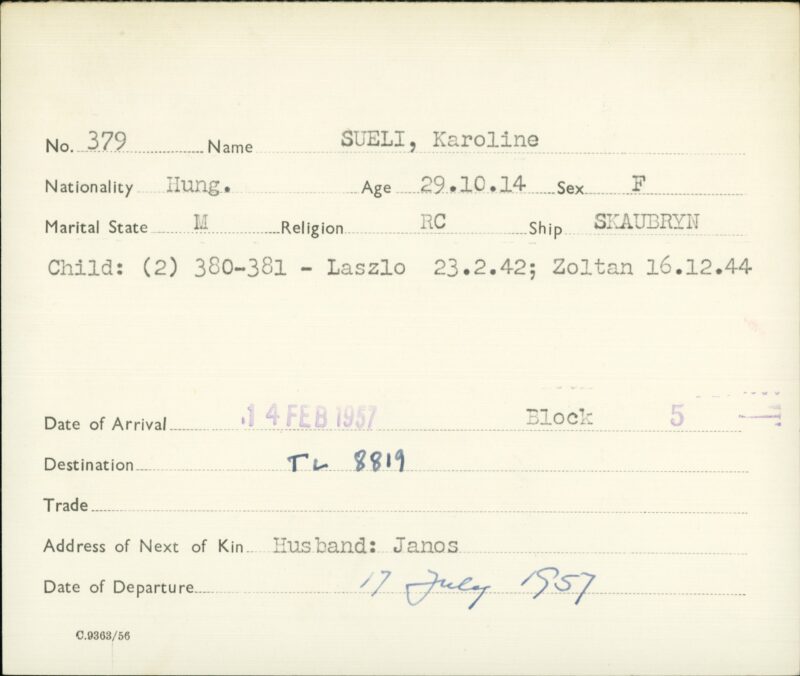 No. 379 Name SUELI, Karoline
Nationality Hung. Age 29.10.14 Sex F
Marital State M Religion RC Ship SKAUBRYN
Child: (2) 380-381 - Laszlo 23.2.42; Zoltan 16.12.44
Date of Arrival 14 FEB 1957 Block 5
Destination TL 8819
Trade
Address of Next of Kin Husband: Janos
Date of Departure 17 July 1957
C.9363/56